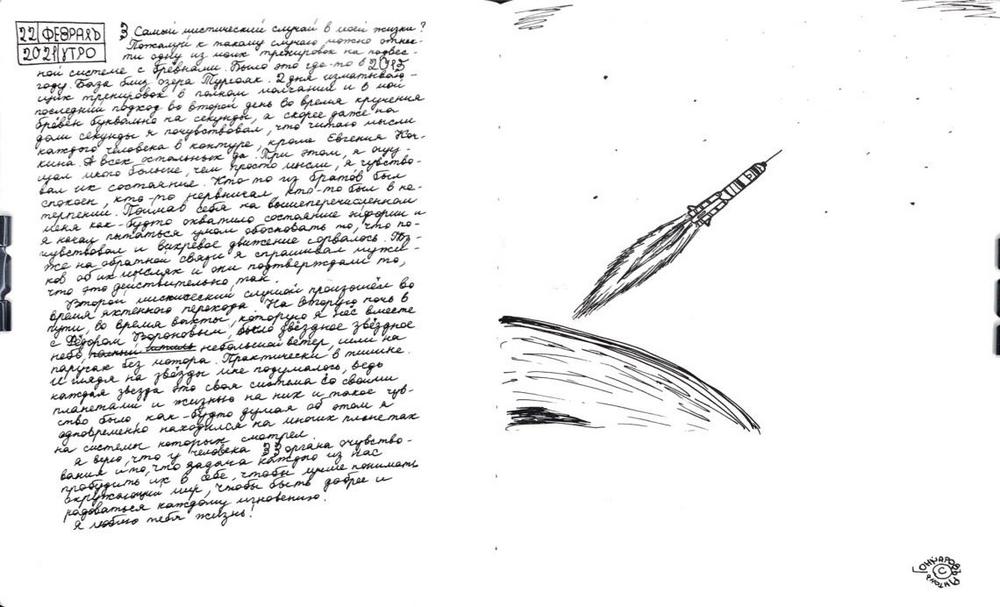 22 ФЕВРАЛЬ
2021 УТРО
Самый мистический случай в моей жизни?
Пожалуй к такому случаю можно отнес-
ти одну из моих тренировок на подвес-
ной системе с брёвнами. Было это где-то в 2015
году. База близ озера Тургояк. 2 дня изматываю-
щих тренировок в полном молчании и в мой
последний подход во второй день во время кручения
брёвен буквально на секунды, а скорее даже на
доли секунды я почувствовал, что читаю мысли
каждого человека в контуре, кроме Евгения
А всех остальных да. При этом, я ощу-
щал много больше, чем просто мысли, я чувство-
вал их состояние. Кто то из братов был
спокоен, кто-то нервничал, кто-то был в не-
терпении. Поймав себя на вышеперечисленном
меня как-будто охватило состояние эйфории и
я начал пытаться умом обосновать то, что по-
чувствовал и вихревое движение сорвалось. Поз-
же на обратной связи я спрашивал мужи-
ков об их мыслях и они подтверждали то,
что это действительно так.
Второй мистический случай произошёл во
время яхтенного перехода. На вторую ночь в
пути, во время вахты, которую я нёс вместе
с Фёдором Вороновым, было звёздное звёздное
небо, небольшой ветер, шли на
парусах без мотора. Практически в тишине.
И глядя на звёзды мне подумалось, ведь
каждая звезда это своя система со своими
планетами и жизнью на них и такое чув-
ство было как-будто думая об этом я
одновременно находился на многих планетах
на системы которых смотрел.
Я верю, что у человека 33 органа очувство-
вания и то, что задача каждого из нас
пробудить их в себе, чтобы лучше понимать
окружающий мир, чтобы быть добрее и
радоваться каждому мгновению.
Я люблю тебя жизнь!
©